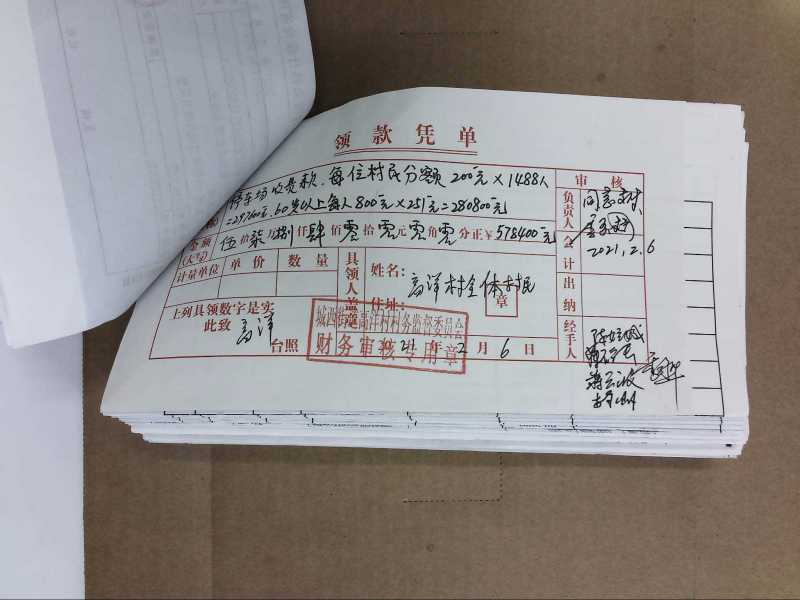 领款凭单
停车场收是款.每位村民分额200元×1488人
=297600元.60岁以上每人800元×251元=280800元
金额
(大写)
伍拾柒万捌仟肆佰零拾零元零角零分正¥578400元
计量单位 单价 数量
具领人盖章
姓名:
高洋村全体村民
章
住址:
上列具领数字是实
此致
高洋
台照
城西街道高洋村村务监督委员会
财务审核专用章
21年2月6日
审核
负责人
同意
2021.2.6
会计
出纳
经手人